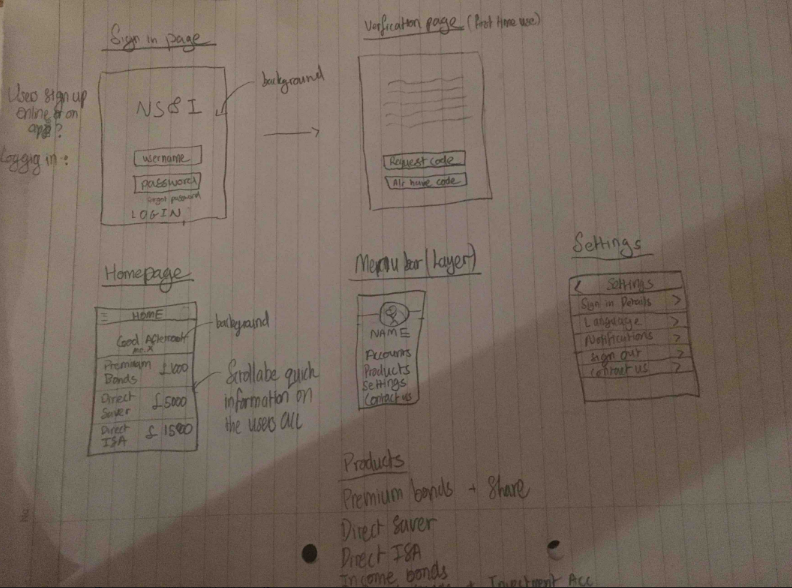 Sign in page
Users sign up
online or on
app?
Logging in:
NS&I
background
username
password
forgot password
LOGIN
Verification page (first time use)
Request code
Alr have code
Homepage
HOME
Good Afternoon
background
Premium
Bonds
Direct
Saver £5000
Direct
ISA
Scrollabe quick
information on
the users acc
Menu bar (Layer)
NAME
Accounts
Products
Settings
Contact us
Settings
Settings
Sign in Details >
Language >
Notifications >
Sign out >
Contact us >
Products
Premium bonds + Share
Direct Saver
Direct ISA
Income bonds
+ Investment Acc